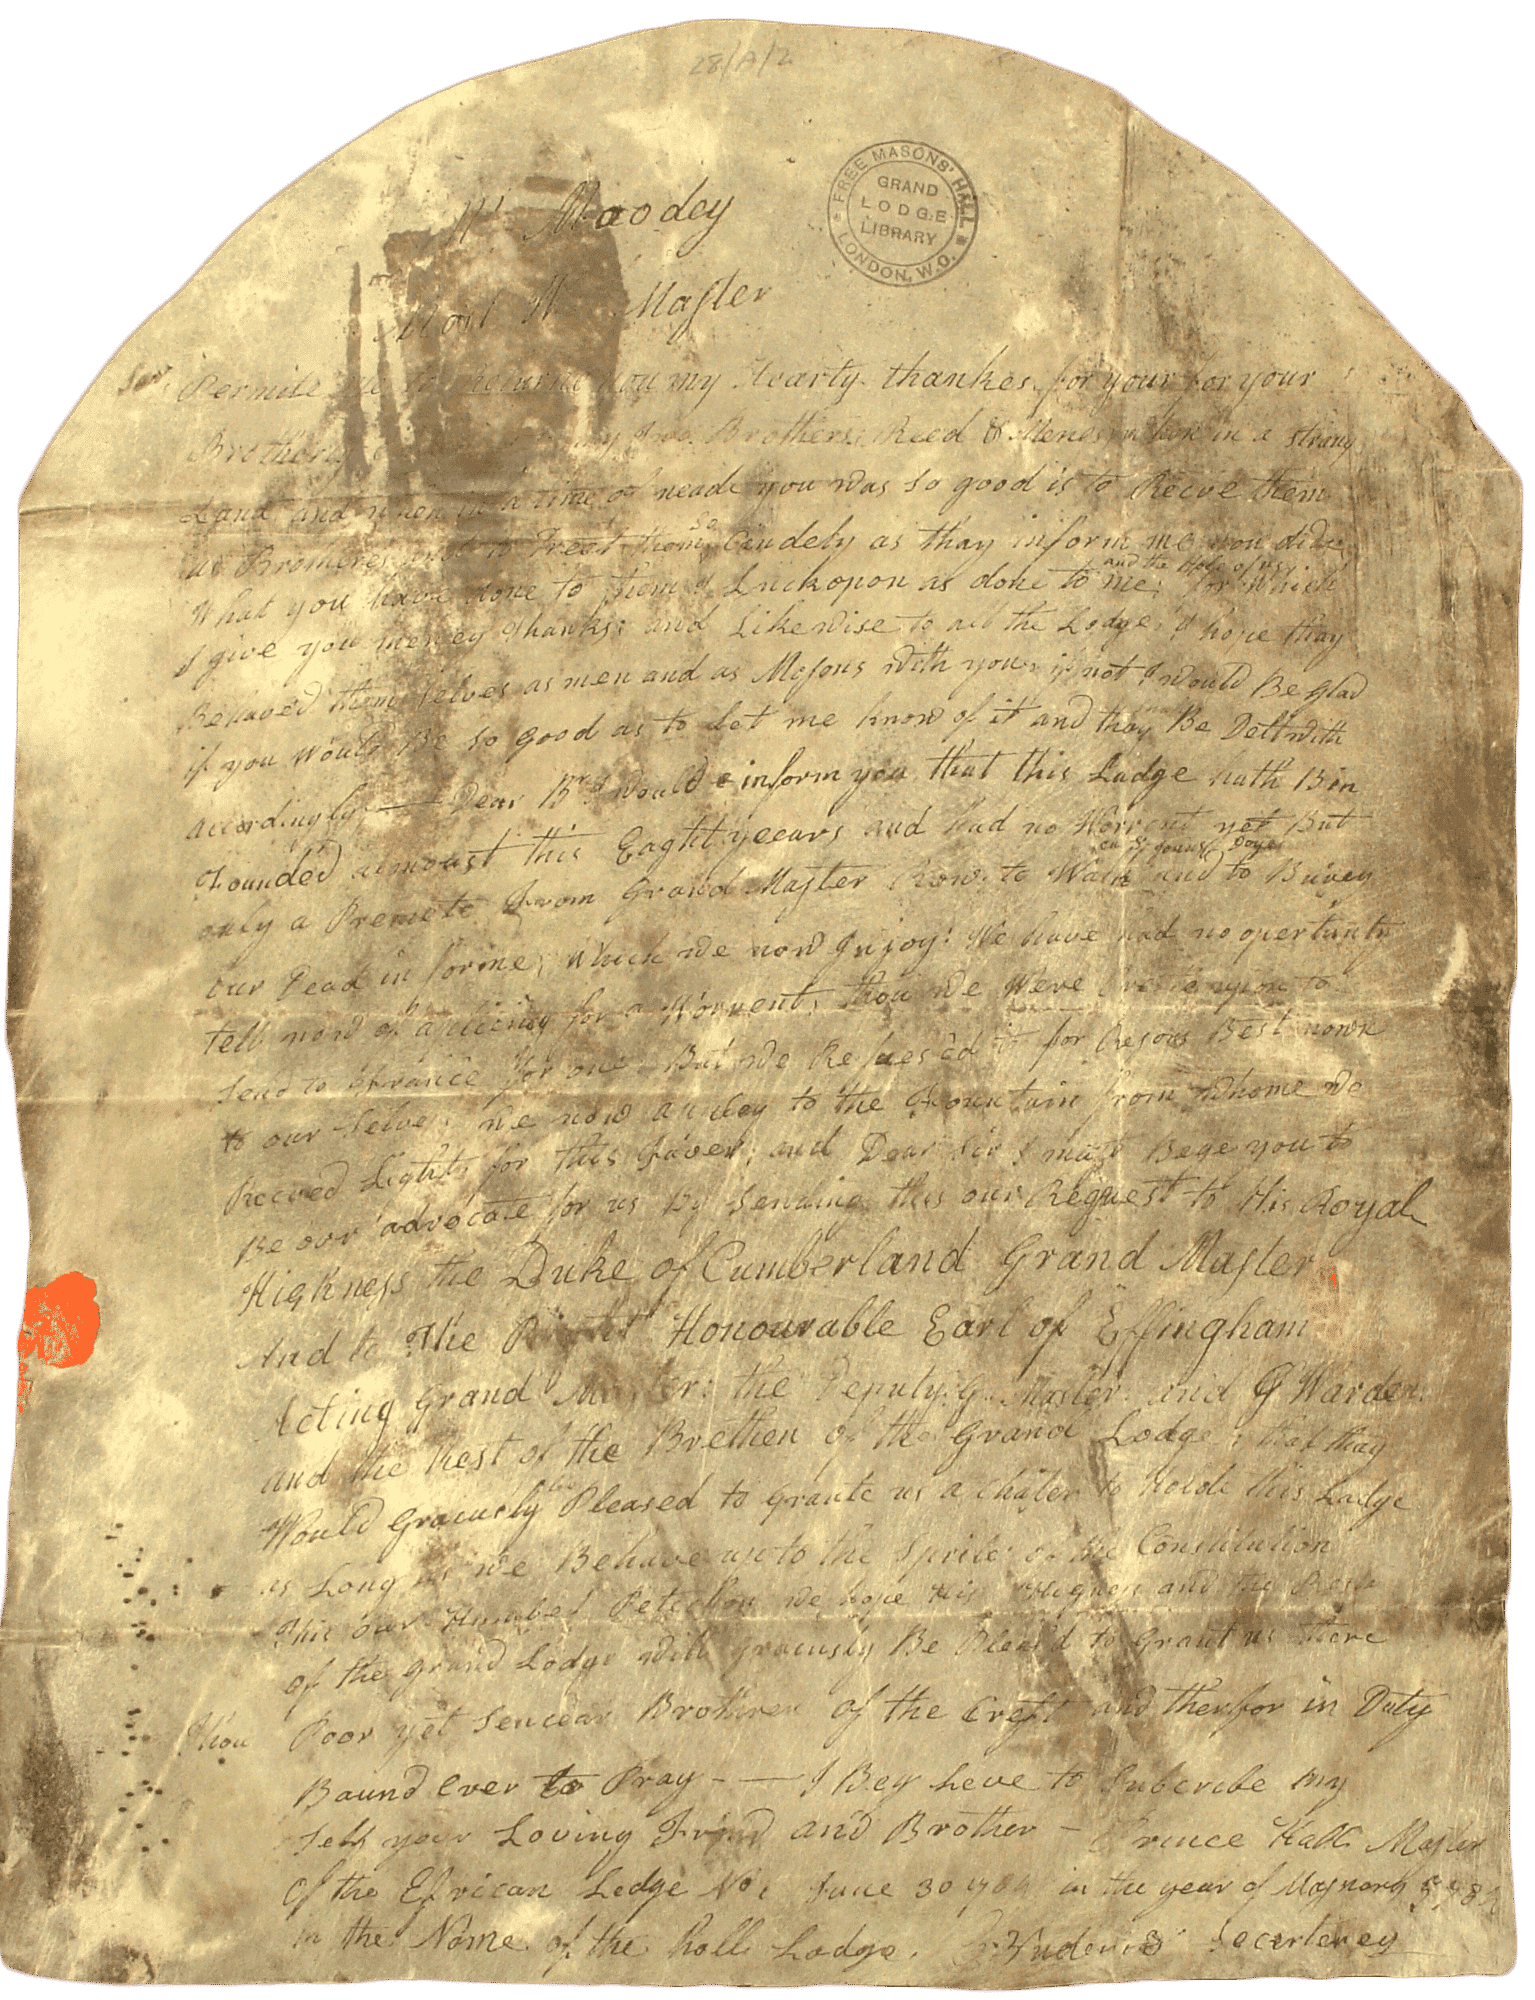 28/A/2
FREE MASONS' HALL
GRAND
LODGE
LIBRARY
LONDON, W.C.
Wm Moodey
Most W Master
Permite me to Returne you my Hearty thankes for your for your
Brotherly my two Brothers Reed & Menes when in a strang
Land and when in a time of neade you was so good is to Recve them
as Brothers and to Treet them so Cindely as thay inform me you dide
What you have done to them I Luckopon as done to me and the hole of us, for Which
I give you meney thanks: and Likewise to all the Lodge; I hope thay
Behaved them selves as men and as Masons with you, if not I would Be glad
if you would Be so good as to Let me know of it and thay Be Delt with
accordingly — Dear Br I would inform you that this Lodge hath Bin
Founded almoust this Eaght yeears and had no Worrent yet But
only a Premete From Grand Master Row to Walk on St Jouns Daye and to Burey
our Dead in forme, Which we now Injoy: We have had no opertunity
tell now of aplieing for a Worrent, thou we Were upon to
send to France for one But we Refuesed it for Resons Best nown
to our selves we now apley to the Fountain from whome We
Receved Light for this Faver: and Dear Sir I must Bege you to
Be our advocate for us By sending this our Request to His Royal
Highness the Duke of Cumberland Grand Master
And to The Right Honourable Earl of Effingham
Acting Grand Master: the Deputy G. Master and G Warden
and the Rest of the Brethen of the Grand Lodge: that thay
Would Graciusly Pleased to Grante us a Chater to Holde this Lodge
as Long as we Behave up to the Sprite of the Constitution
This our Humbel Petetion we hope His Higness and the Rest
of the Grand Lodge will graciusly Be Pleas'd to Grant us there
Thou Poor yet Sencear Brothren of the Creft and therfor in Duty
Baund Ever to Pray - — I Beg Leve to Subcribe my
self your Loving Frind and Brother - Prince Hall Master
Of the Efrican Lodge No 1 June 30 in the year of Masnory
in the Name of the holl Lodge. Secerterey